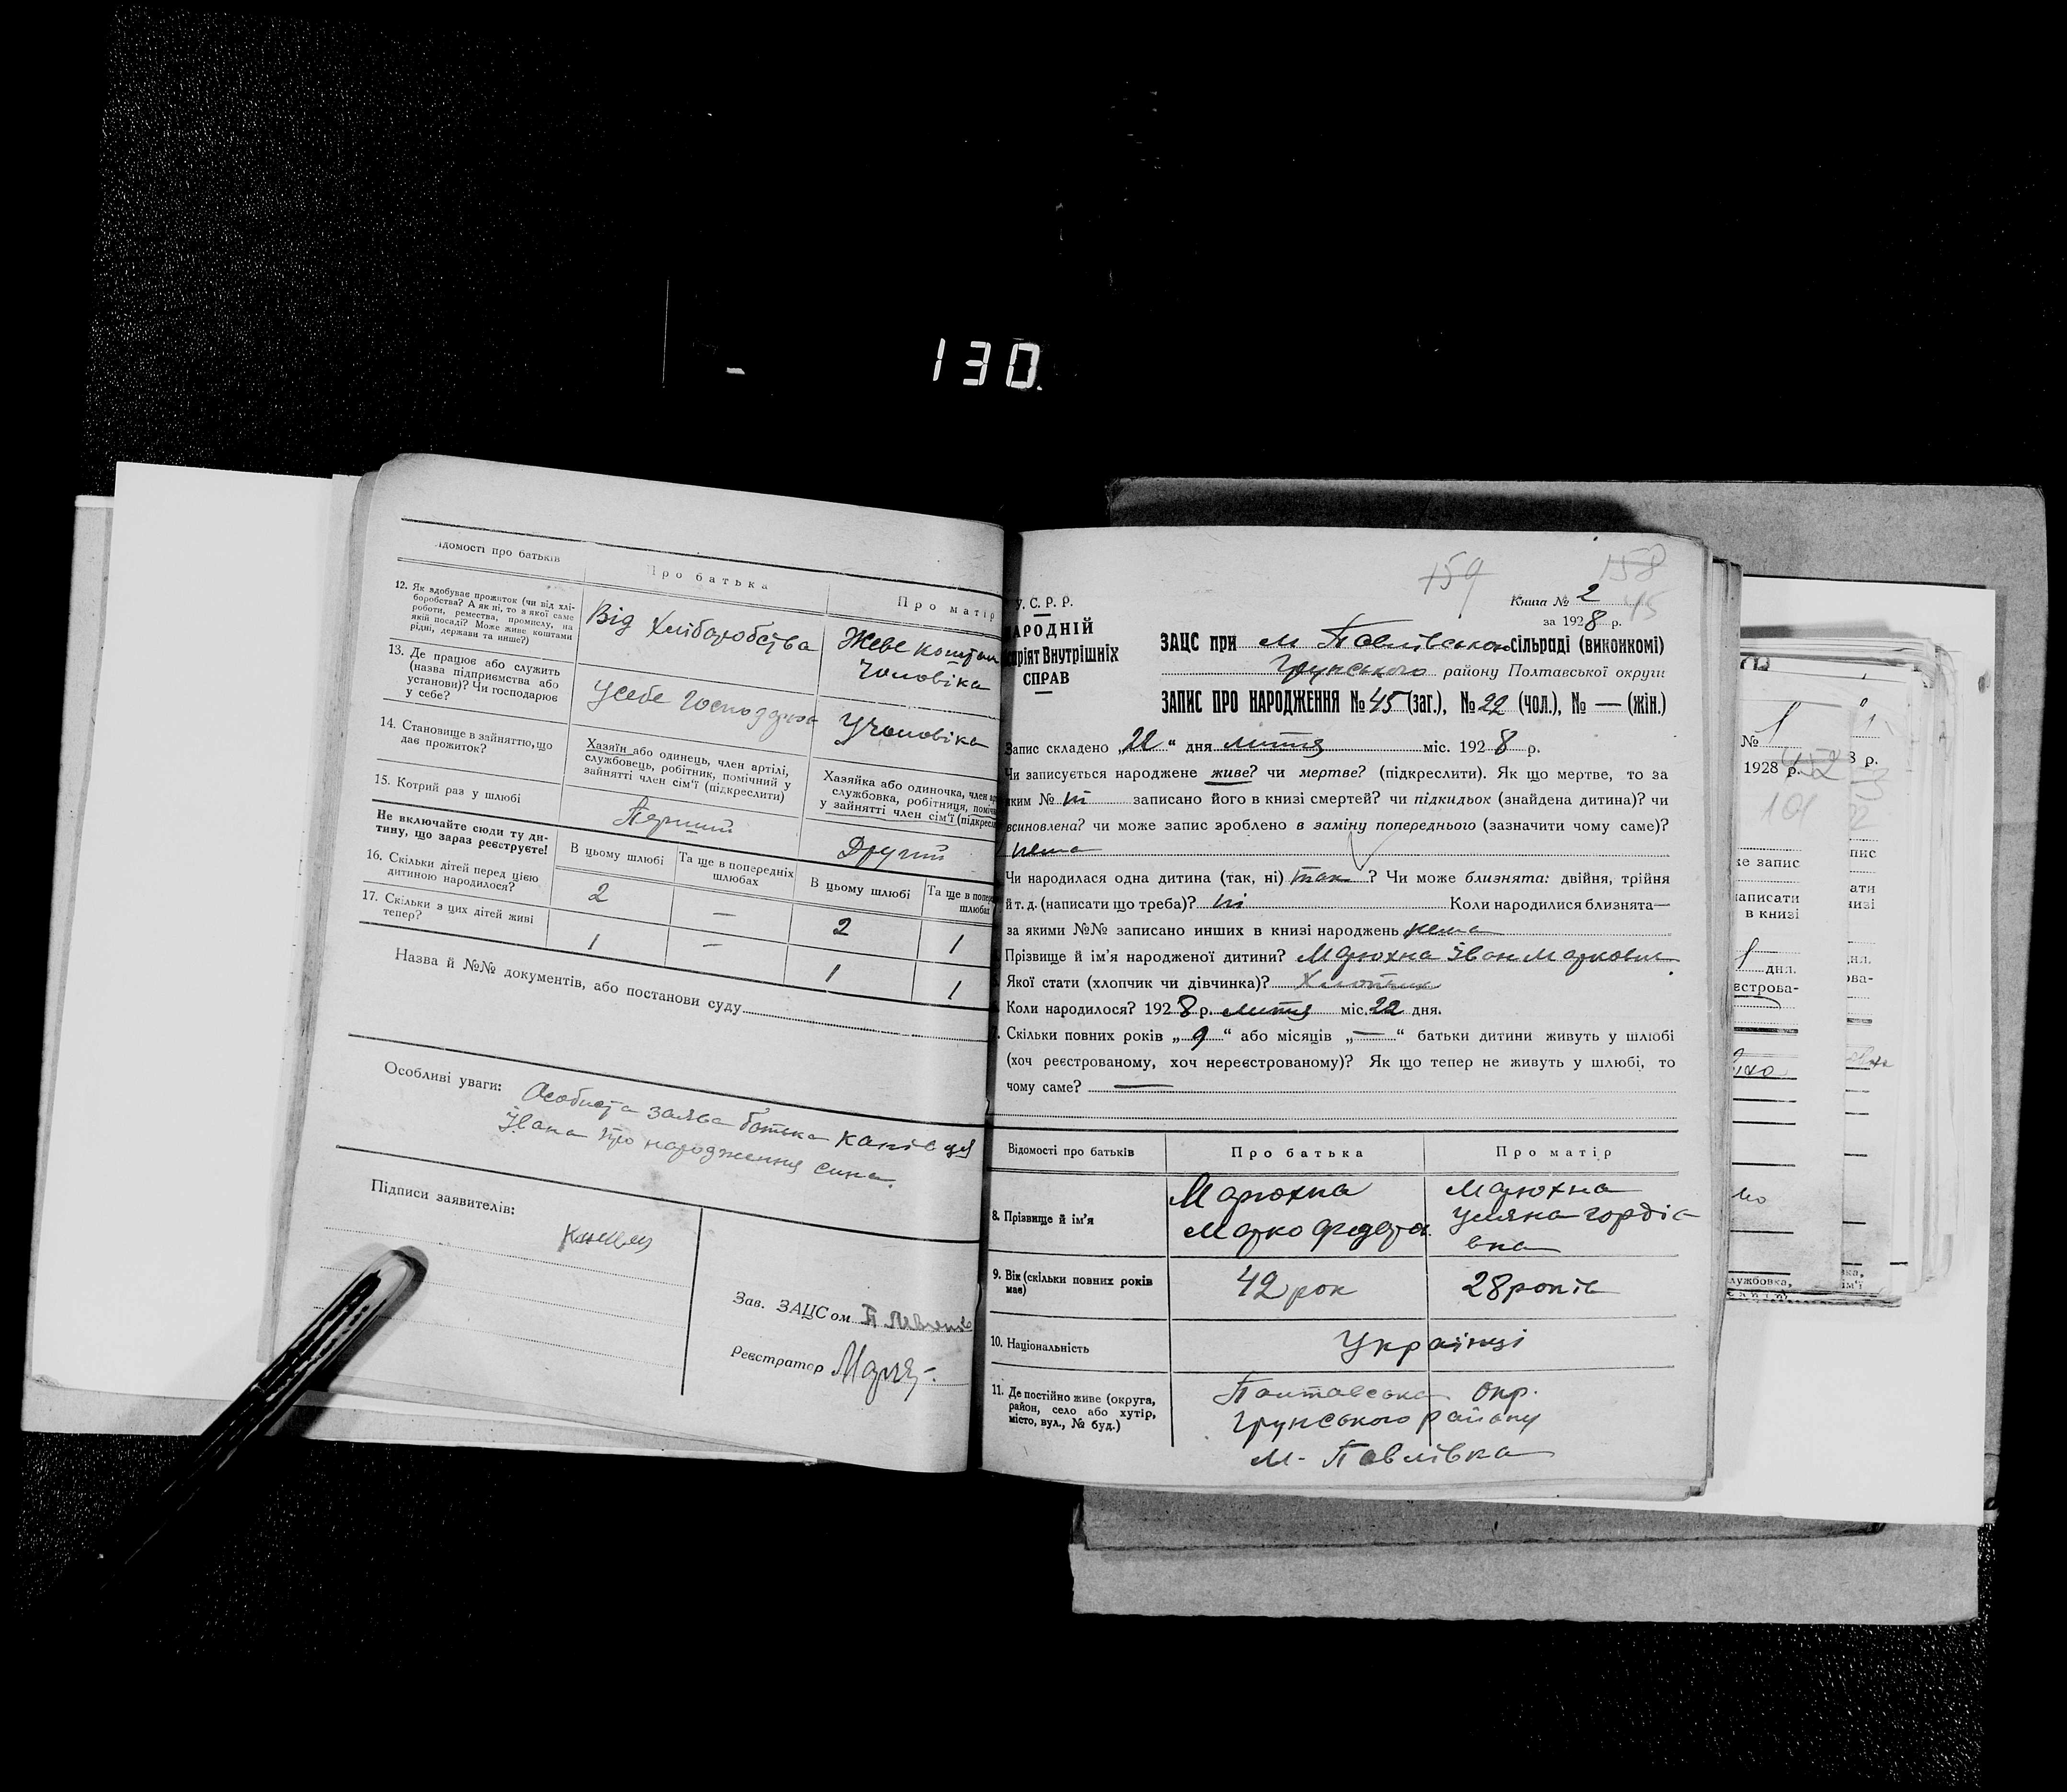 130.
Відомості про батьків
Про батька
Про матір
12. Як здобуває прожиток (чи від хлі-
боробства? А як ні, то з якої саме
роботи, ремества, промислу, на
якій посаді? Може живе коштами
рідні, держави та инше?)
Від Хліборобства
Жеве коштом
Чоловіка
13. Де працює або служить
(назва підприємства або
установи)? Чи господарює
у себе?
у себе господарює
У чоловіка
14. Становище в зайняттю, що
дає прожиток?
Хазяїн або одинець, член артілі,
службовець, робітник, помічний у
зайнятті член сім'ї (підкреслити)
Хазяйка або одиночка, член ар
службовка, робітниця, поміч
у зайнятті член сім'ї (підкресл
15. Котрий раз у шлюбі
Перший
Другий
Не включайте сюди ту ди-
тину, що зараз реєструєте!
В цьому шлюбі
Та ще в попередніх
шлюбах
В цьому шлюбі
Та ще в попер
шлюбах
16. Скільки дітей перед цією
дитиною народилося?
2 — 2 1
17. Скільки з цих дітей живі
тепер?
1 — 1 1
Назва й №№ документів, або постанови суду
Особливі уваги:
Особиста заява батька
Івана про народження сина.
Підписи заявителів:
Зав. ЗАЦСом
Реєстратор
159
158
Книга № 2
45
за 1928 р.
У.С.Р.Р.
АРОДНІЙ
аріят Внутрішніх
СПРАВ
ЗАЦС при м Павлівському сільраді (виконкомі)
Грунського району Полтавської округи
ЗАПИС ПРО НАРОДЖЕННЯ № 45 (заг.), № 22 (чол.), № — (жін.)
Запис складено „22“ дня лютня міс. 1928 р.
Чи записується народжене живе? чи мертве? (підкреслити). Як що мертве, то за
яким № ні записано його в книзі смертей? чи підкидьок (знайдена дитина)? чи
всиновлена? чи може запис зроблено в заміну попереднього (зазначити чому саме)?
нема
Чи народилася одна дитина (так, ні) так ? Чи може близнята: двійня, трійня
й т. д. (написати що треба)? ні Коли народилися близнята—
за якими №№ записано инших в книзі народжень нема
Прізвище й ім'я народженої дитини? Марюхна Іван Маркович
Якої стати (хлопчик чи дівчинка)? Хлопчик
Коли народилося? 1928 р. лютня міс. 22 дня.
Скільки повних років „9“ або місяців „—“ батьки дитини живуть у шлюбі
(хоч реєстрованому, хоч нереєстрованому)? Як що тепер не живуть у шлюбі, то
чому саме? —
Відомості про батьків
Про батька
Про матір
8. Прізвище й ім'я
Марюхна
Марко Федота
Марюхна
Уляна Гордіє
вна
9. Вік (скільки повних років
має)
42 рок
28 років
10. Національність
Українці
11. Де постійно живе (округа,
район, село або хутір,
місто, вул., № буд.)
Полтавська Окр.
Грунського району
м. Павлівка
№ 1
1928 р.
152
101
е запис
написати
в книзі
дня.
єстрова-
лужбовка,
8 р.
пис
ати
низі
дня.
ова-
ка,
ім'ї